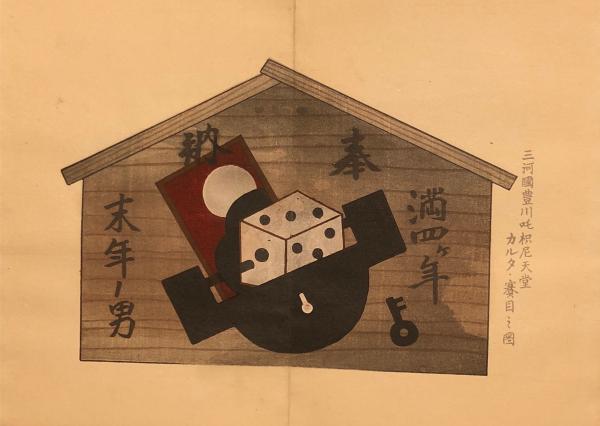 奉納
満四ヶ年
末年ノ男
三河國豊川吒枳尼天堂
カルタ・賽目ミ圖